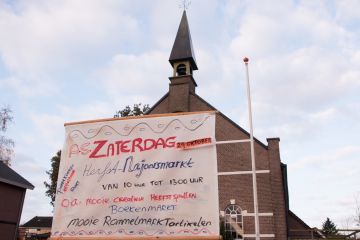 ZATERDAG 29 OKTOBER
Herfst-Najaarsmarkt
VAN 10 UUR TOT 13.00 UUR
O.a. mooie creatieve HERFSTSPULLEN
BOEKENMARKT
mooie RommelMARKTartikelen